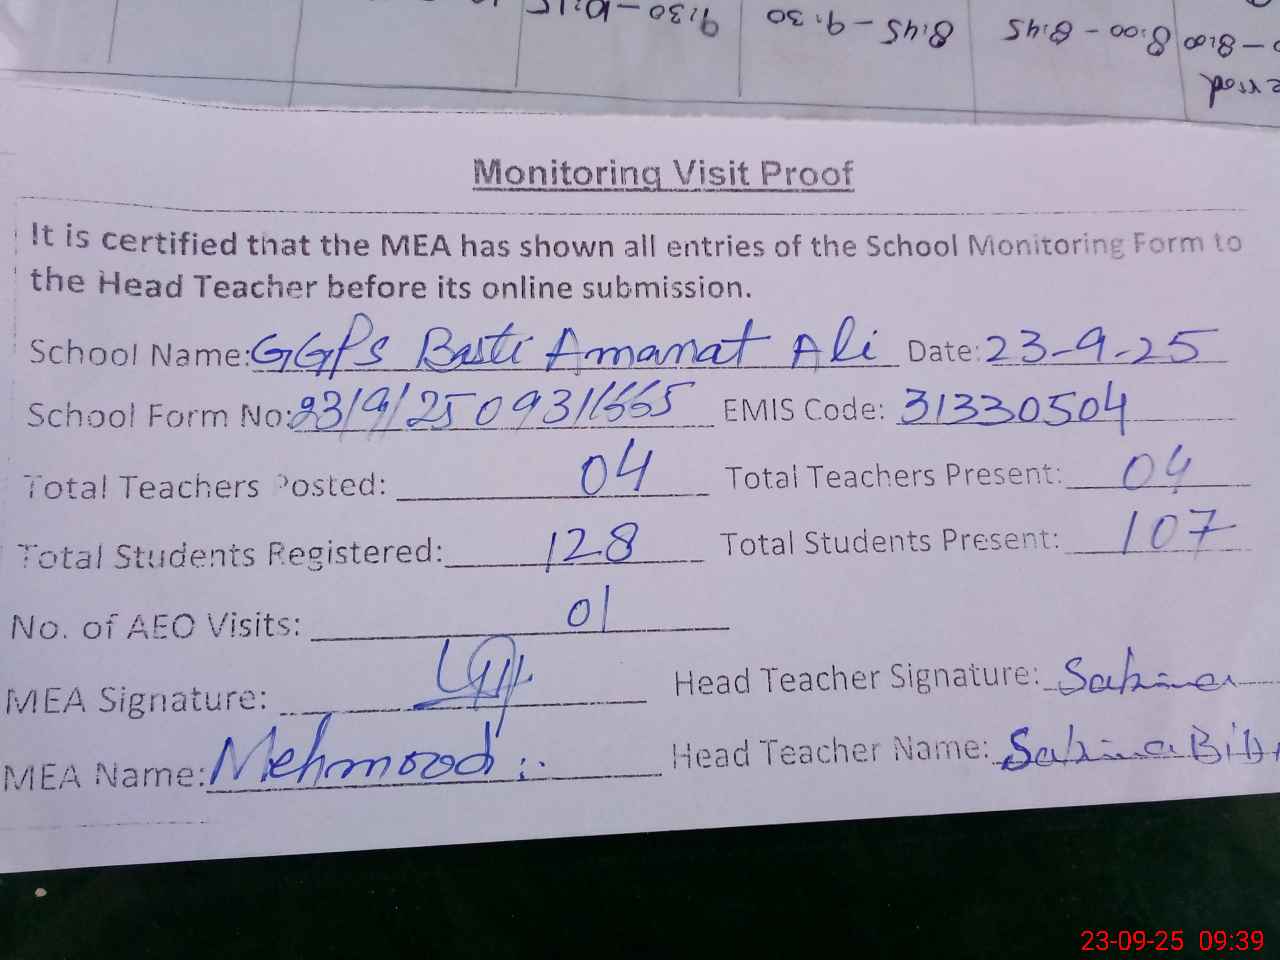 9:30 - 10:15 8:45 - 9:30 8:00 - 8:45 - 8:00
Monitoring Visit Proof
It is certified that the MEA has shown all entries of the School Monitoring Form to
the Head Teacher before its online submission.
School Name: GGPS Basti Amanat Ali Date: 23-9-25
School Form No: 23/9/25 0931665 EMIS Code: 31330504
Total Teachers Posted: 04 Total Teachers Present: 04
Total Students Registered: 128 Total Students Present: 107
No. of AEO Visits: 01
MEA Signature: Head Teacher Signature: Sakina
MEA Name: Mehmood Head Teacher Name: Sakina Bibi
23-09-25 09:39